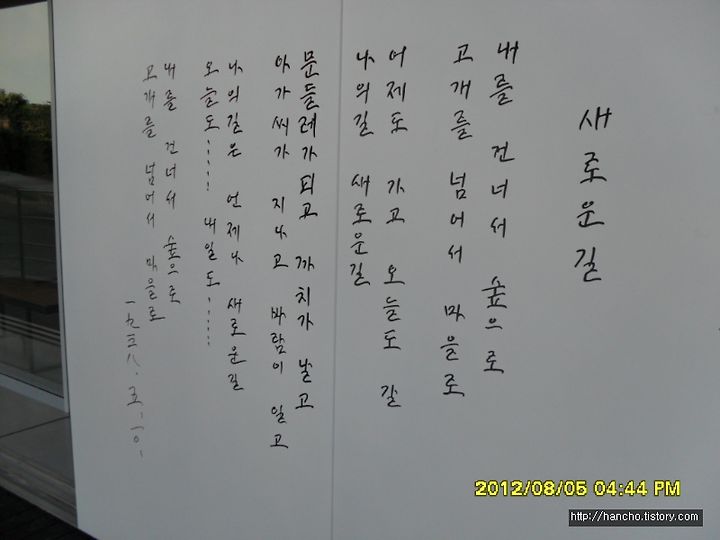 새로운길
내를 건너서 숲으로
고개를 넘어서 마을로
어제도 가고 오늘도 갈
나의길 새로운길
문들레가 피고 까치가 날고
아가씨가 지나고 바람이 일고
나의길은 언제나 새로운길
오늘도…… 내일도……
내를 건너서 숲으로
고개를 넘어서 마을로
一九三八.五.一○.
2012/08/05 04:44 PM
http://hancho.tistory.com